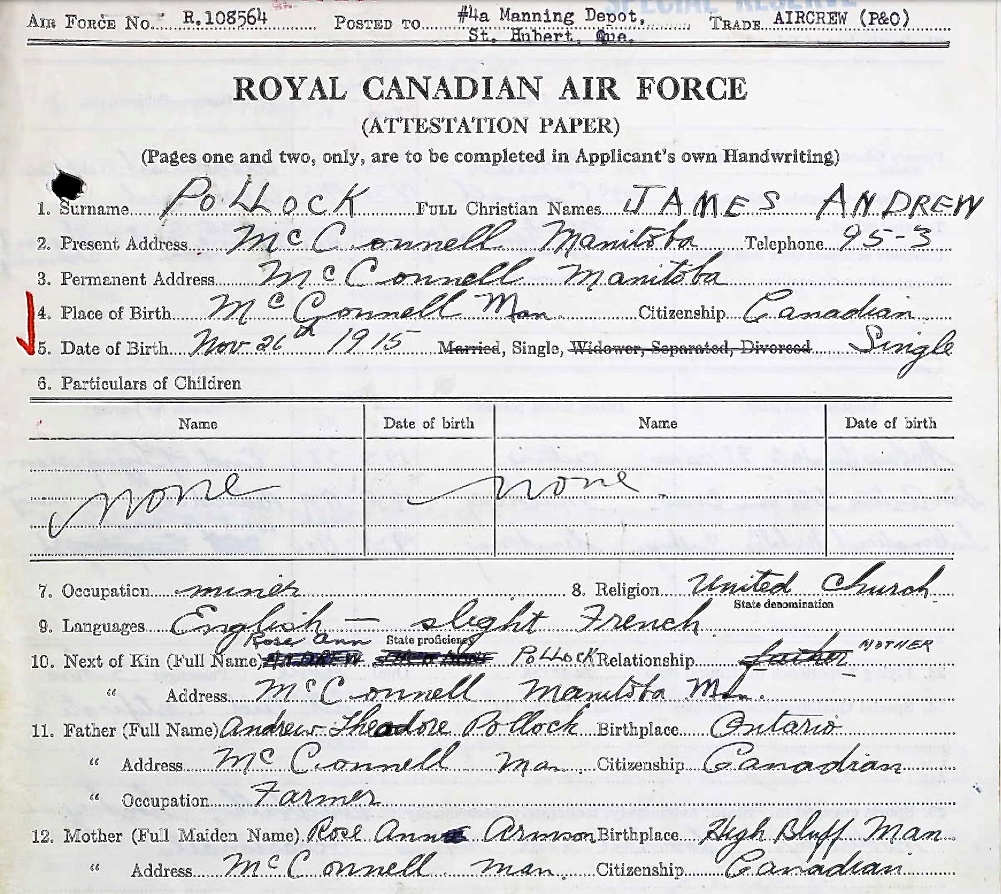 SPECIAL RESERVE
AIR FORCE No. R.108564 POSTED TO #4a Manning Depot, TRADE AIRCREW (P&O)
St. Hubert, Que.
ROYAL CANADIAN AIR FORCE
(ATTESTATION PAPER)
(Pages one and two, only, are to be completed in Applicant's own Handwriting)
1. Surname POLLOCK FULL Christian Names JAMES ANDREW
2. Present Address McConnell Manitoba Telephone 95-3
3. Permanent Address McConnell Manitoba
4. Place of Birth McConnell Man Citizenship Canadian
5. Date of Birth Nov 26th 1915 Married, Single, Widower, Separated, Divorced Single
6. Particulars of Children
Name Date of birth Name Date of birth
none none
7. Occupation miner 8. Religion United Church
State denomination
9. Languages English — slight French
State proficiency
Rose Ann
10. Next of Kin (Full Name) POLLOCK Relationship father MOTHER
" Address McConnell Manitoba Man.
11. Father (Full Name) Andrew Theodore Pollock Birthplace Ontario
" Address McConnell Man Citizenship Canadian
" Occupation Farmer
12. Mother (Full Maiden Name) Rose Ann Armson Birthplace High Bluff Man
" Address McConnell man. Citizenship Canadian